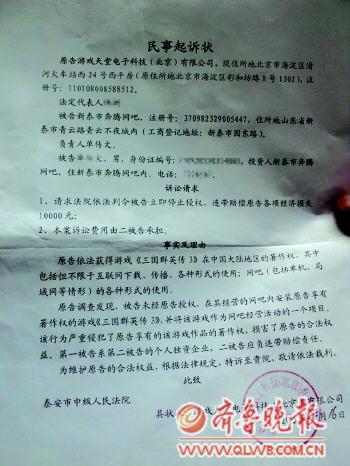 民事起诉状
原告游戏天堂电子科技(北京)有限公司,现住所地北京市海淀区清
河火车站西24号西平房(原住所地北京市海淀区彩和坊路8号1302),注
册号:110108008588512。
法定代表人
被告新泰市奔腾网吧,注册号:370982329005447,住所地山东省新
泰市青云路青云不夜城内(工商登记地址:新泰市園东路)。
负责人单伟文
被告 男,身份证编号: 投资人新泰市奔腾
网吧,住新泰市奔腾网吧内,电话:
诉讼请求
1、请求法院依法判令被告立即停止侵权,连带赔偿原告各项经济损失
10000元;
2、本案诉讼费用由二被告承担。
事实及理由
原告依法获得游戏《三国群英传3》在中国大陆地区的著作权,其中
包括但不限于互联网下载、传播、各种形式的使用;网吧(包括单机、局
域网等情形)的各种形式的使用。
原告调查发现,被告未经原告授权,在其经营的网吧内安装原告享有
著作权的游戏《三国群英传3》,并将该游戏作为网吧经营活动的一个项目,
该行为严重侵犯了原告享有的该游戏作品的著作权,损害了原告的合法权
益。第一被告系第二被告的个人独资企业,二被告应负连带赔偿责任。
为维护原告的合法权益,根据法律规定,特诉至贵院,敬请依法裁判。
此致
泰安市中级人民法院
具状人 北京)有限公司
月16日
齐鲁晚报